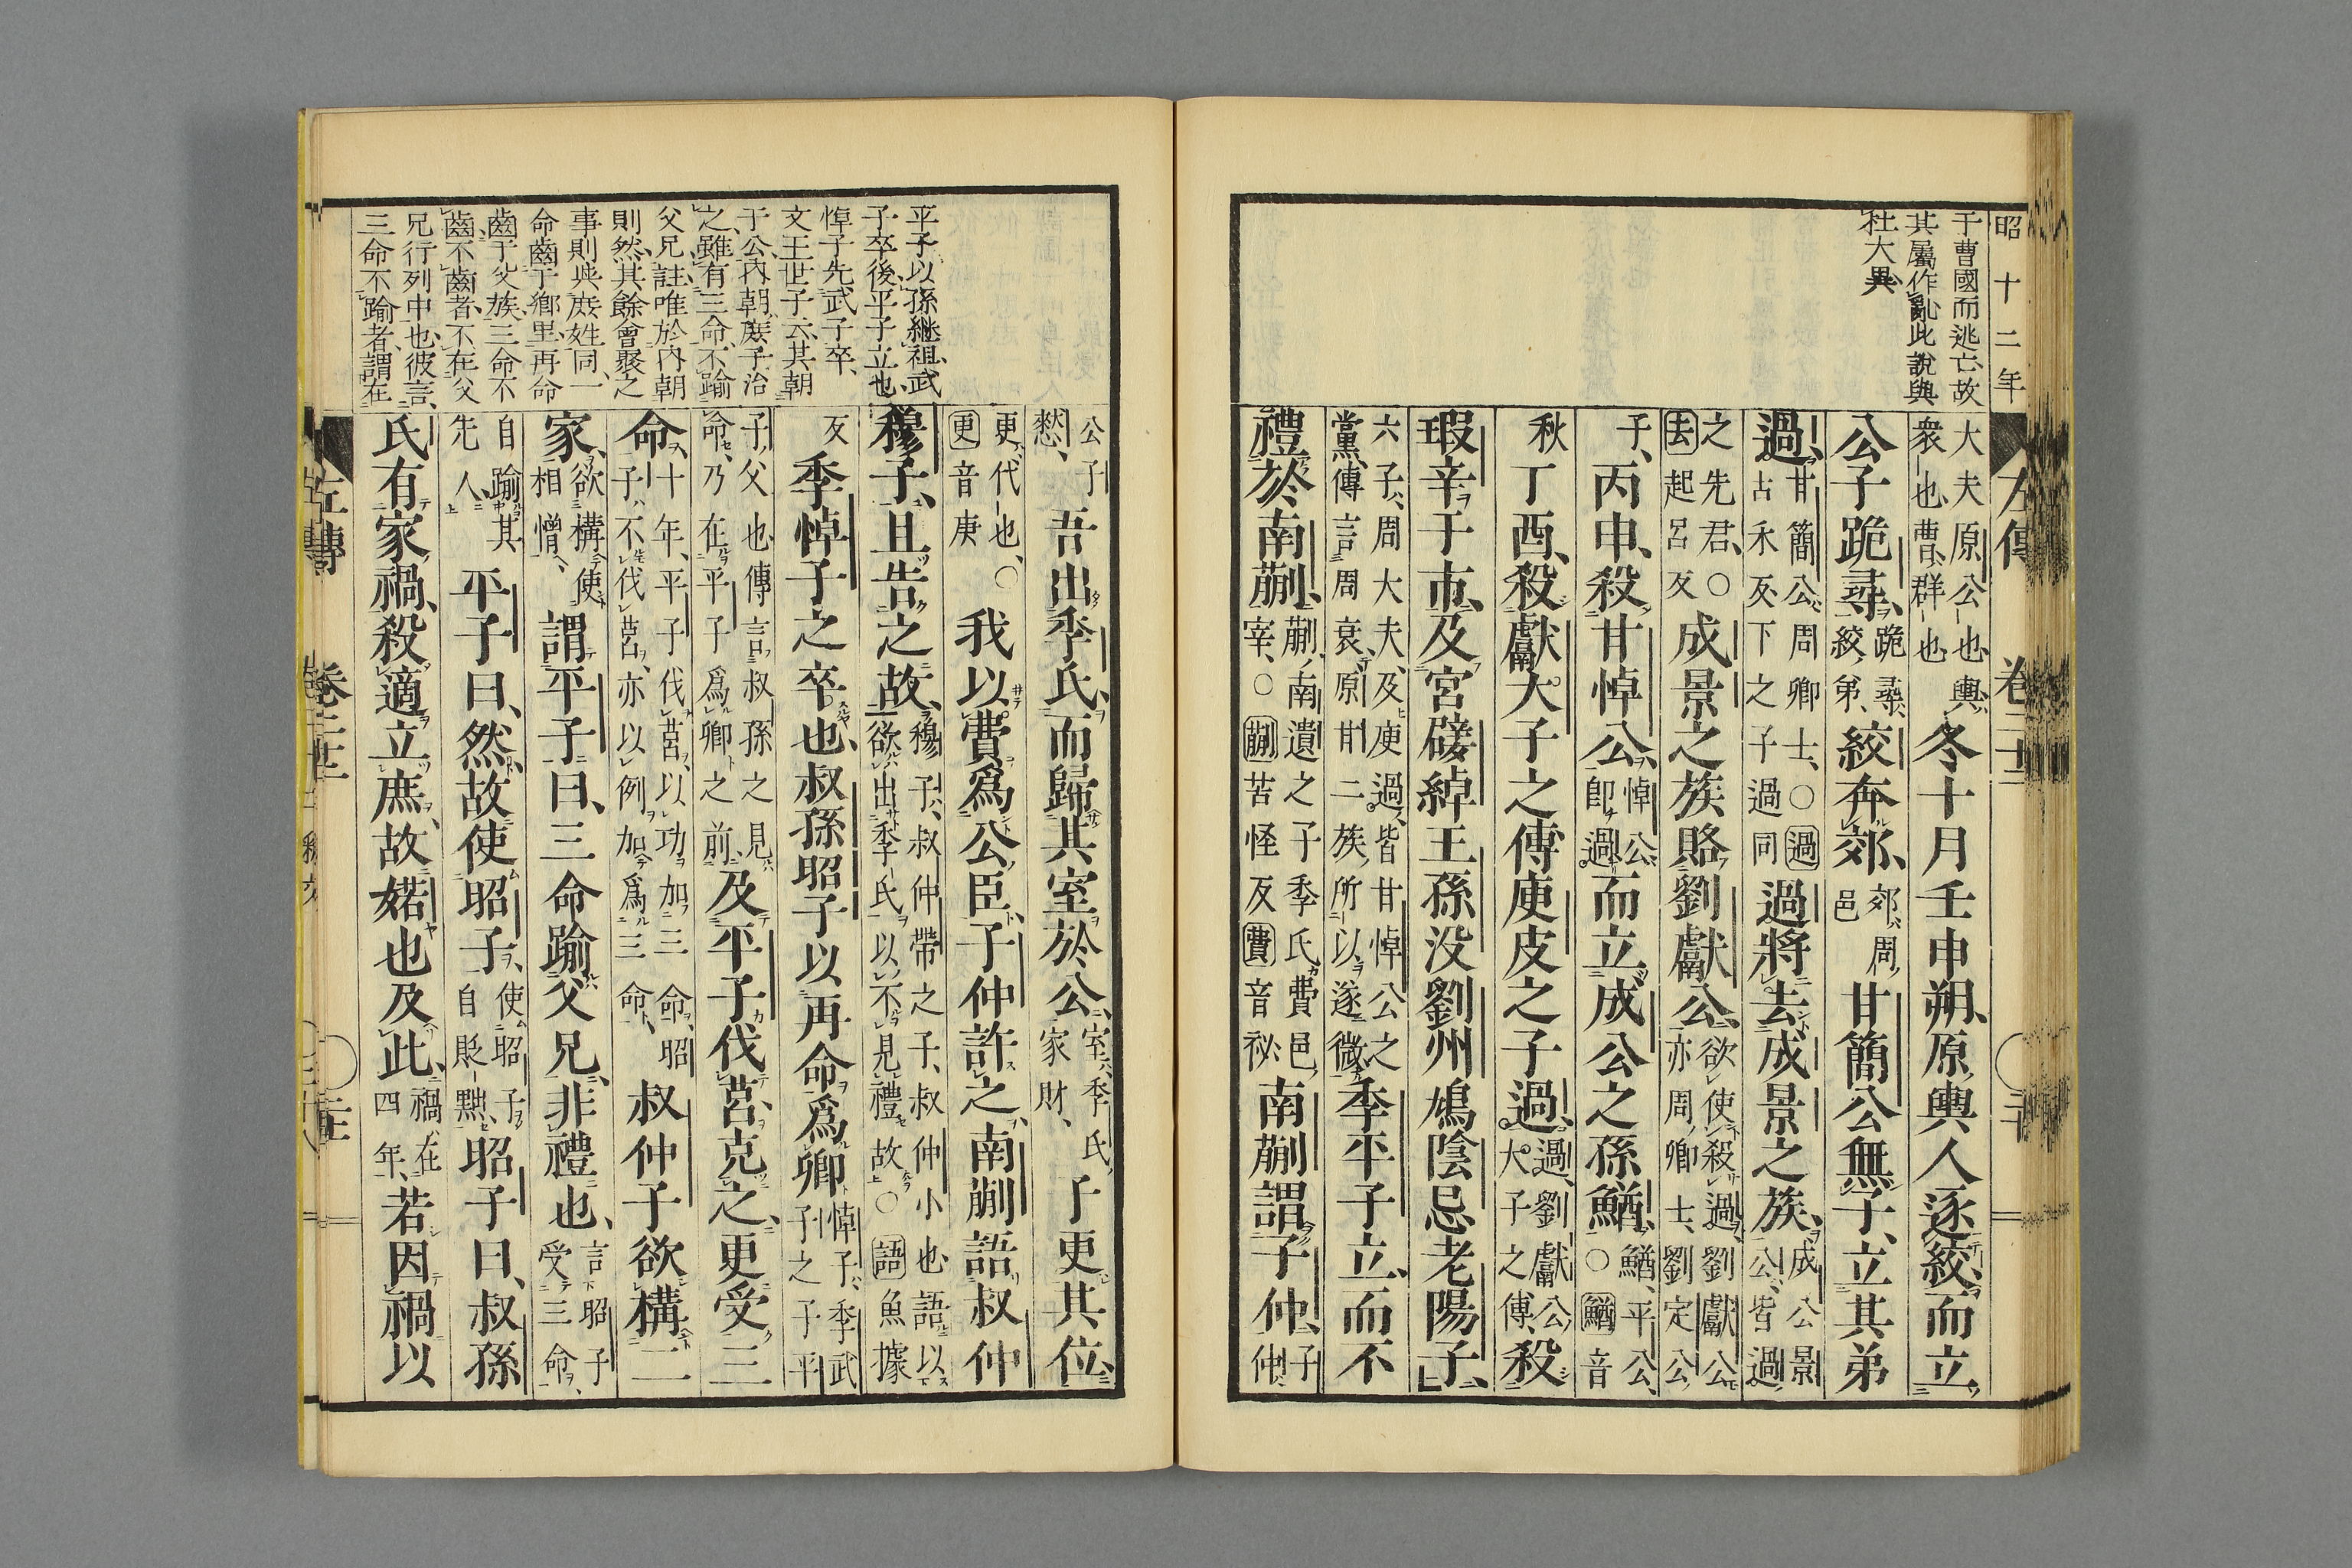 昭十二年
左傳 卷二十二
于曹國而逃亡故
其屬作亂此說與
杜大異
大夫原公也輿
衆也曹群也
冬十月壬申朔原輿人逐絞而立
公子跪尋
跪尋
絞弟
絞奔郊
郊周
邑
甘簡公無子立其弟
過
甘簡公周卿士○過
古禾反下之子過同
過將去成景之族
成公景
公皆過
之先君○
去起呂反
成景之族賂劉獻公
欲使殺過劉獻公
亦周卿士劉定公
子
丙申殺甘悼公
悼公
即過
而立成公之孫鰌
鰌平公
○鰌音
秋
丁酉殺獻大子之傅庾皮之子過
過劉獻公
大子之傅
殺
瑕辛于市及宮嬖綽王孫没劉州鳩陰忌老陽子
六子周大夫及庾過皆甘悼公之
黨傳言周衰原甘二族所以遂微
季平子立而不
禮於南蒯
蒯南遺之子季氏費邑
宰○蒯苦怪反費音祕
南蒯謂子仲
子
仲
平子以孫繼祖武
子卒後平子立也
悼子先武子卒
文王世子云其朝
于公內朝庶子治
之雖有三命不踰
父兄註唯於內朝
則然其餘會聚之
事則與庶姓同一
命齒于鄉里再命
齒于父族三命不
齒不齒者不在父
兄行列中也彼言
三命不踰者謂在
公子
憖
吾出季氏而歸其室於公
室季氏
家財
子更其位
更代也○
更音庚
我以費爲公臣子仲許之南蒯語叔仲
穆子且告之故
穆子叔仲帶之子叔仲小也語以
欲出季氏以不見禮故○語魚據
反
季悼子之卒也叔孫昭子以再命爲卿
悼子季武
子之子平
子父也傳言叔孫之見
命乃在平子爲卿之前
及平子伐莒克之更受三
命
十年平子伐莒以功加三命昭
子不伐莒亦以例加爲三命
叔仲子欲構二
家
欲構使
相憎
謂平子曰三命踰父兄非禮也
言昭子
受三命
自踰其
先人
平子曰然故使昭子
使昭子
自貶黜
昭子曰叔孫
氏有家禍殺適立庶故婼也及此
禍在
四年
若因禍以
左傳 卷二十二